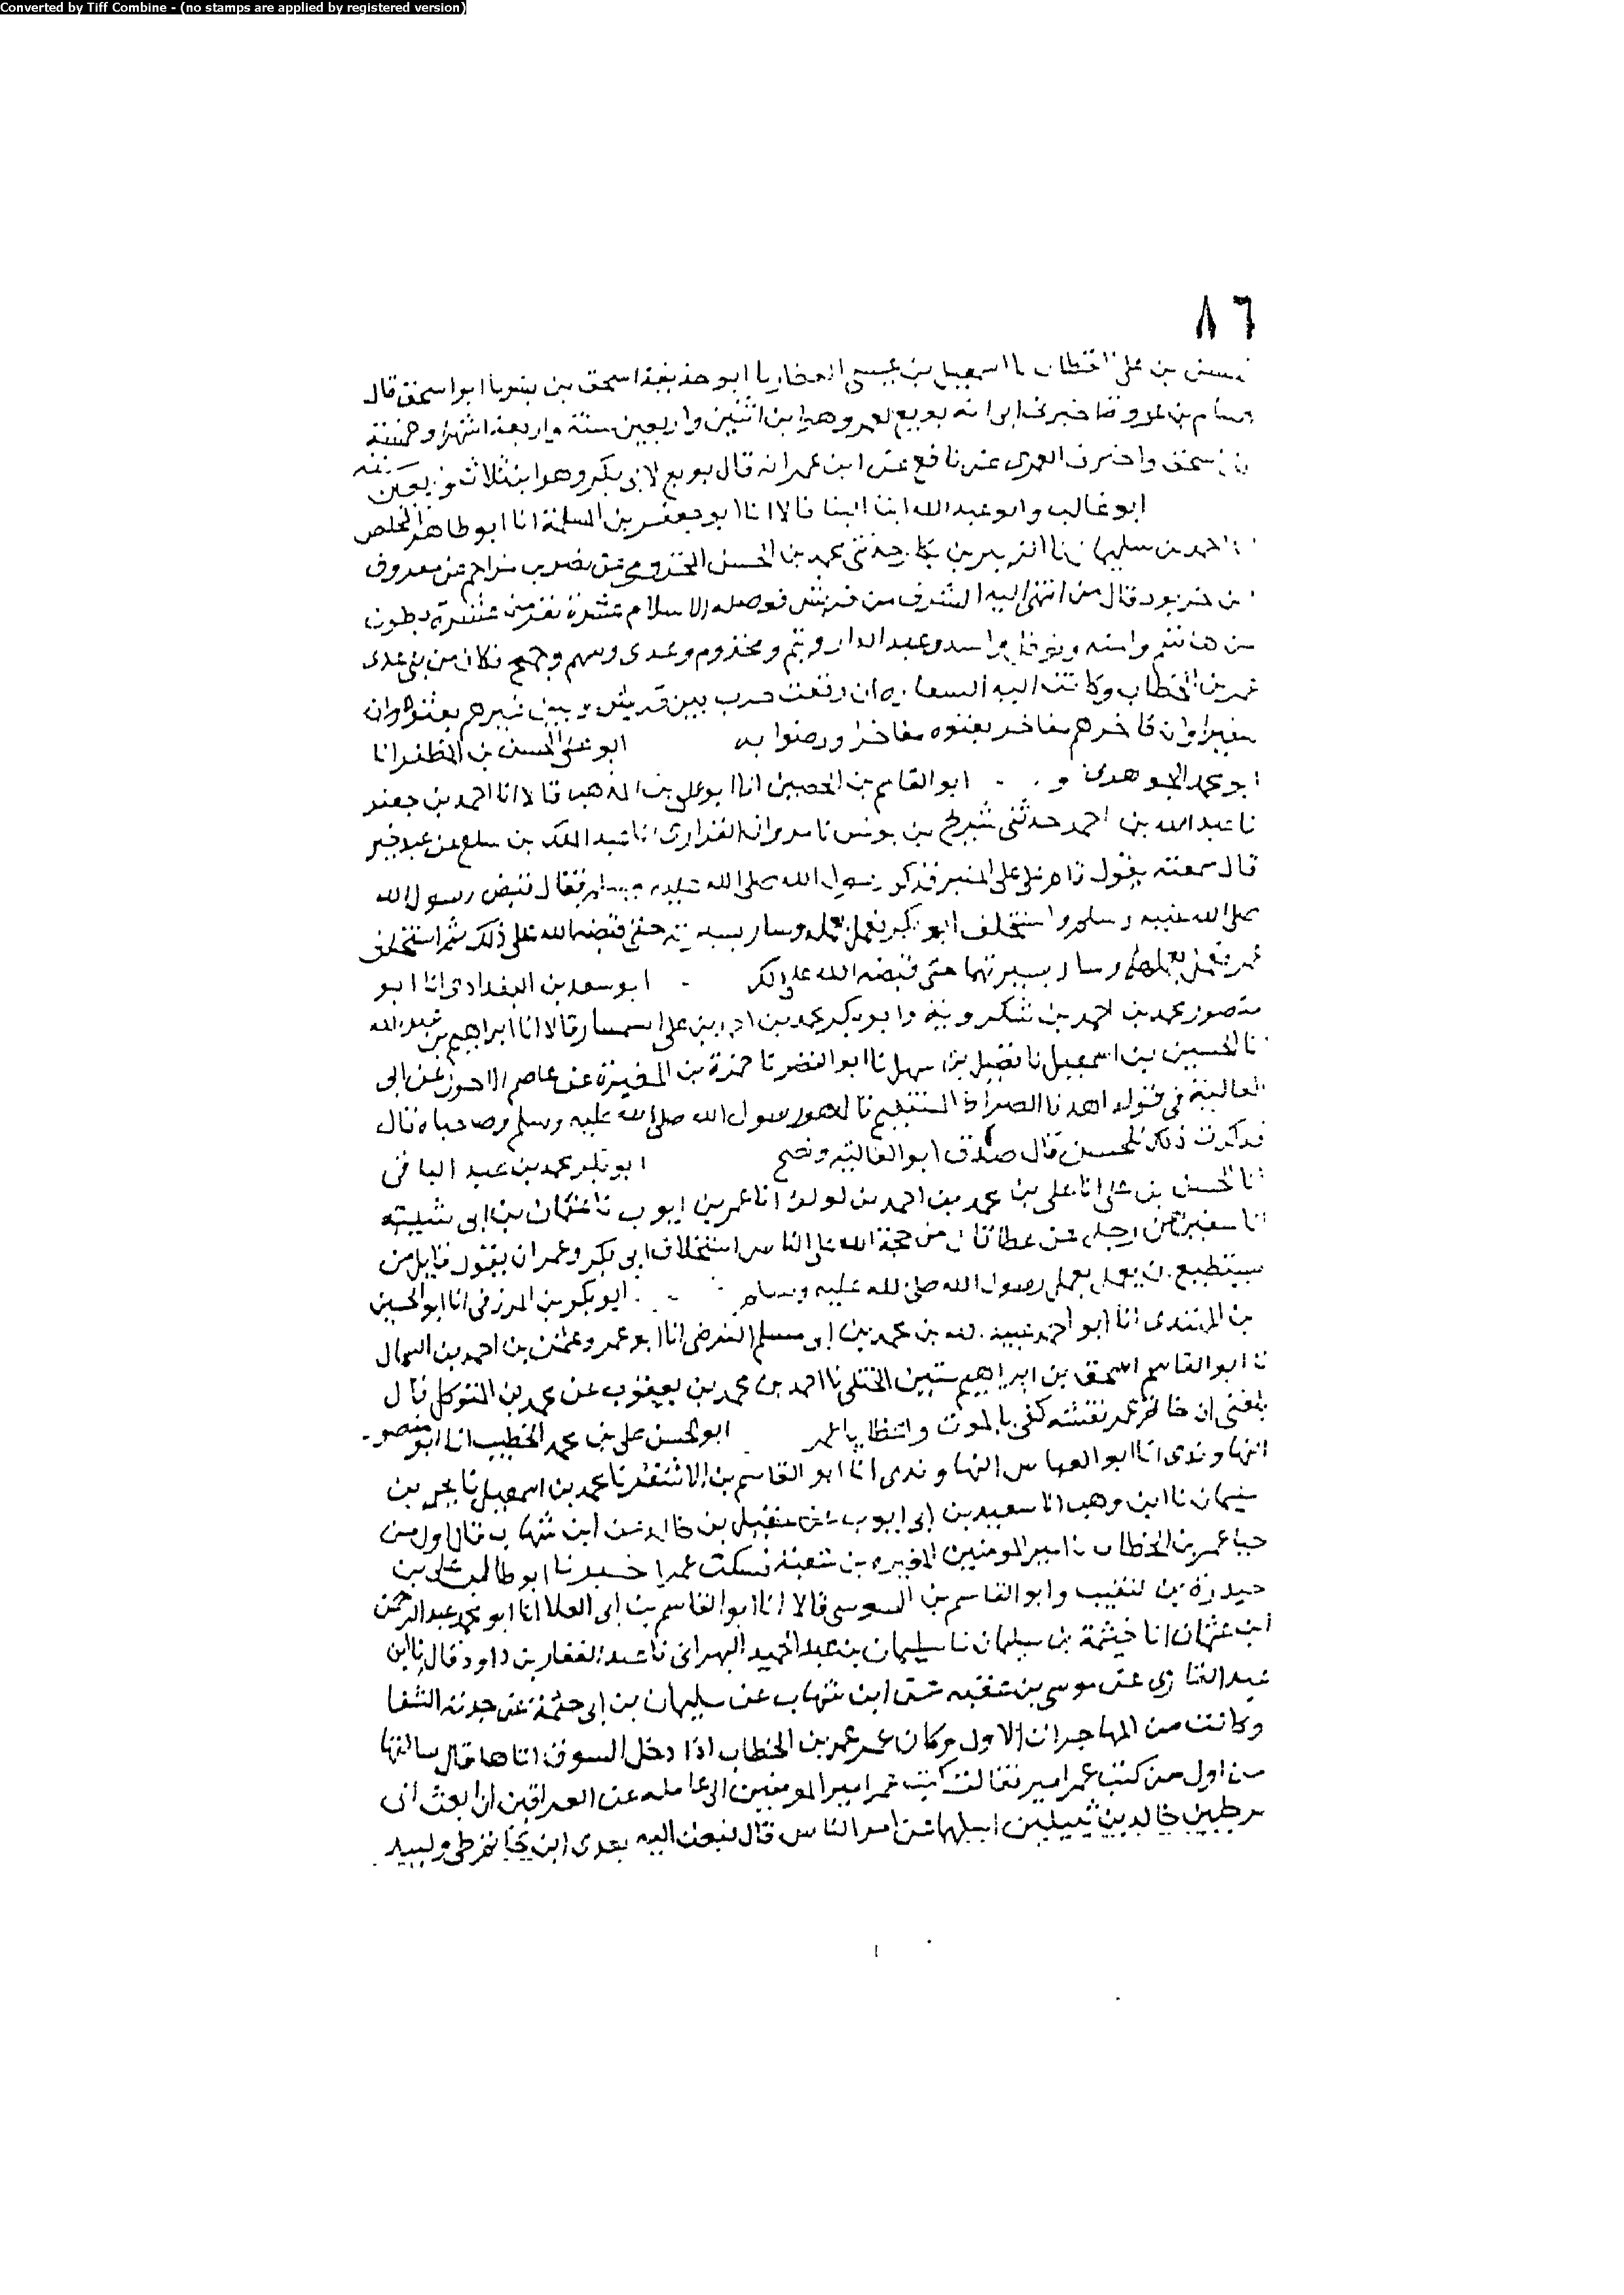 Converted by Tiff Combine - (no stamps are applied by registered version)
٨٦
بن على القطان نا اسمعيل بن عيسى العطار نا ابو حذيفة اسحق بن بشر نا ابو اسحق قال
هشام بن عروة اخبرنى ابى انه بويع لعمر وهو ابن اثنين واربعين سنة واربعة اشهر وخمسة
واخبرنى العمرى عن نافع عن ابن عمر انه قال بويع لابى بكر وهو ابن ثلاث
ابو غالب وابو عبد الله ابنا البنا قالا انا ابو جعفر بن المسلمة انا ابو طاهر المخلص
احمد بن سليمان نا الزبير بن بكار حدثنى محمد بن الحسن المخزومى عن نصر بن مزاحم عن معروف
بن خربوذ قال من انتهى اليه الشرف من قريش فوصله الاسلام عشرة نفر من عشرة بطون
من هاشم واميه ونوفل واسد وعبد الدار وتيم ومخزوم وعدى وسهم وجمح فكان من بنى عدى
عمر بن الخطاب وكانت اليه السفاره ان وقعت حرب بين قريش وبين غيرهم بعثوه وان
فاخرهم مفاخر بعثوه مفاخرا ورضوا به ابو على الحسن بن المظفر انا
ابو محمد الجوهرى و ابو القاسم بن الحصين انا ابو على بن المذهب قالا انا احمد بن جعفر
نا عبد الله بن احمد حدثنى شريح بن يونس نا مروان الفزارى انا عبد الملك بن سلع عن عبد خير
قال سمعته يقول قام على على المنبر فذكر رسول الله صلى الله عليه وسلم فقال قبض رسول الله
صلى الله عليه وسلم واستخلف ابو بكر فعمل بعمله وسار بسيرته حتى قبضه الله على ذلك ثم استخلف
عمر فعمل بعملهما وسار بسيرتهما حتى قبضه الله على ذلك ابو سعد بن البغدادى انا ابو
منصور محمد بن احمد بن شكرويه وابو بكر محمد بن احمد بن على السمسار قالا انا ابراهيم بن عبد الله
نا الحسين بن اسمعيل نا فضيل بن سهل نا ابو النضر نا حمزة بن المغيرة عن عاصم الاحول عن ابى
العالية فى قوله اهدنا الصراط المستقيم قال هو رسول الله صلى الله عليه وسلم وصاحباه قال
فذكرت ذلك للحسن فقال صدق ابو العالية ونصح ابو بكر محمد بن عبد الباقى
نا الحسن بن على انا على بن محمد بن احمد بن لولو انا عمر بن ايوب نا عثمان بن ابى شيبه
نا سفين عن رجل عن عطا قال من حجة الله على الناس استخلاف ابى بكر وعمر ان يقول قايل من
يستطيع ان يعمل بعمل رسول الله صلى الله عليه وسلم ابو بكر بن المزرفى انا ابو الحسين
بن المهتدى انا ابو احمد عبيد الله بن محمد بن ابى مسلم الفرضى انا ابو عمرو عثمن بن احمد بن السماك
نا ابو القاسم اسحق بن ابراهيم بن سنين الختلى نا احمد بن محمد بن يعقوب عن محمد بن المتوكل قال
بلغنى ان خاتم عمر نقشته كفى بالموت واعظا يا عمر ابو الحسن على بن محمد الخطيب انا ابو منصور
النهاوندى انا ابو العباس النهاوندى انا ابو القاسم بن الاشقر نا محمد بن اسمعيل نا يحيى بن
سليمان نا ابن وهب انا سعيد بن ابى ايوب عن عقيل بن خالد عن ابن شهاب قال اول من
حيا عمر بن الخطاب يا امير المومنين المغيره بن شعبة فسكت عمر اخبرنا ابو طالب على بن
حيدرة بن النقيب وابو القاسم بن السوسى قالا انا ابو القاسم بن ابى العلا انا ابو محمد عبد الرحمن
ابن عثمان انا خيثمة بن سليمان نا سليمان بن عبد الحميد البهرانى نا عبد الغفار بن داود قال نا ابن
عبد القارى عن موسى بن عقبه عن ابن شهاب عن سليمان بن ابى حثمة عن جدته الشفا
وكانت من المهاجرات الاول وكان عمر بن الخطاب اذا دخل السوق اتاها قال سالتها
من اول من كتب عمر امير فقالت كتب عمر امير المومنين الى عامله على العراقين ان ابعث الى
برجلين جلدين نبيلين اسلهما عن امر الناس قال فبعث اليه بعدى ابن حاتم ولبيد